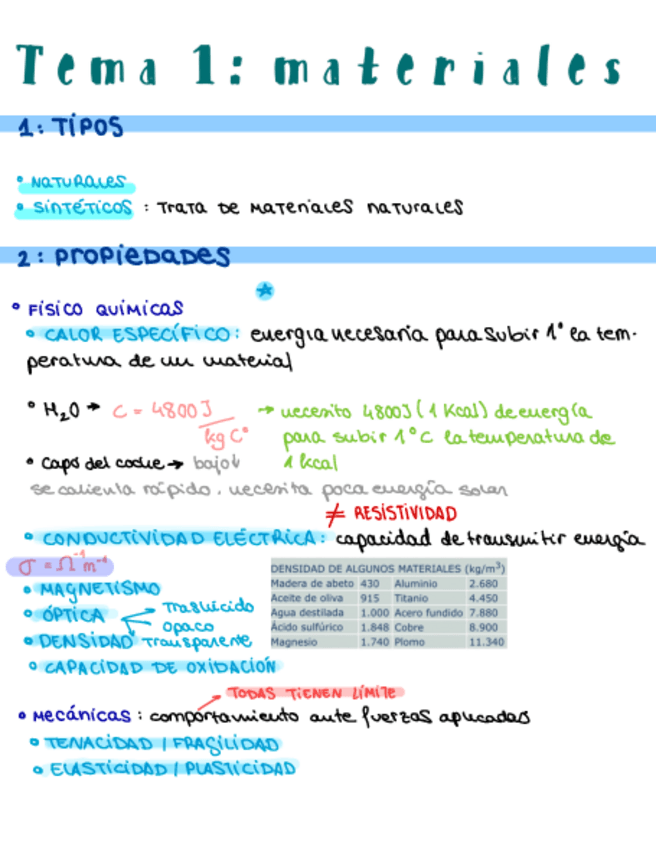 Tema 1: materiales
1: TIPOS
• NATURALES
• SINTÉTICOS : TRATA DE MATERIALES NATURALES
2: PROPIEDADES
• FÍSICO QUÍMICAS
• CALOR ESPECÍFICO: energia necesaria para subir 1° la tem-
peratura de un material
• H₂O → C = 4800 J / kg C° → necesito 4800J (1 Kcal) de energía
para subir 1°C la temperatura de
1 kcal
• Capó del coche → bajo↓
se calienta rápido, necesita poca energía solar
≠ RESISTIVIDAD
• CONDUCTIVIDAD ELÉCTRICA: capacidad de transmitir energía
σ = Ω⁻¹ m⁻¹
• MAGNETISMO
• ÓPTICA Traslúcido
opaco
Transparente
• DENSIDAD
DENSIDAD DE ALGUNOS MATERIALES (kg/m³)
Madera de abeto 430 Aluminio 2.680
Aceite de oliva 915 Titanio 4.450
Agua destilada 1.000 Acero fundido 7.880
Ácido sulfúrico 1.848 Cobre 8.900
Magnesio 1.740 Plomo 11.340
• CAPACIDAD DE OXIDACIÓN
TODAS TIENEN LÍMITE
• Mecánicas : comportamiento ante fuerzas aplicadas
• TENACIDAD / FRAGILIDAD
• ELASTICIDAD / PLASTICIDAD